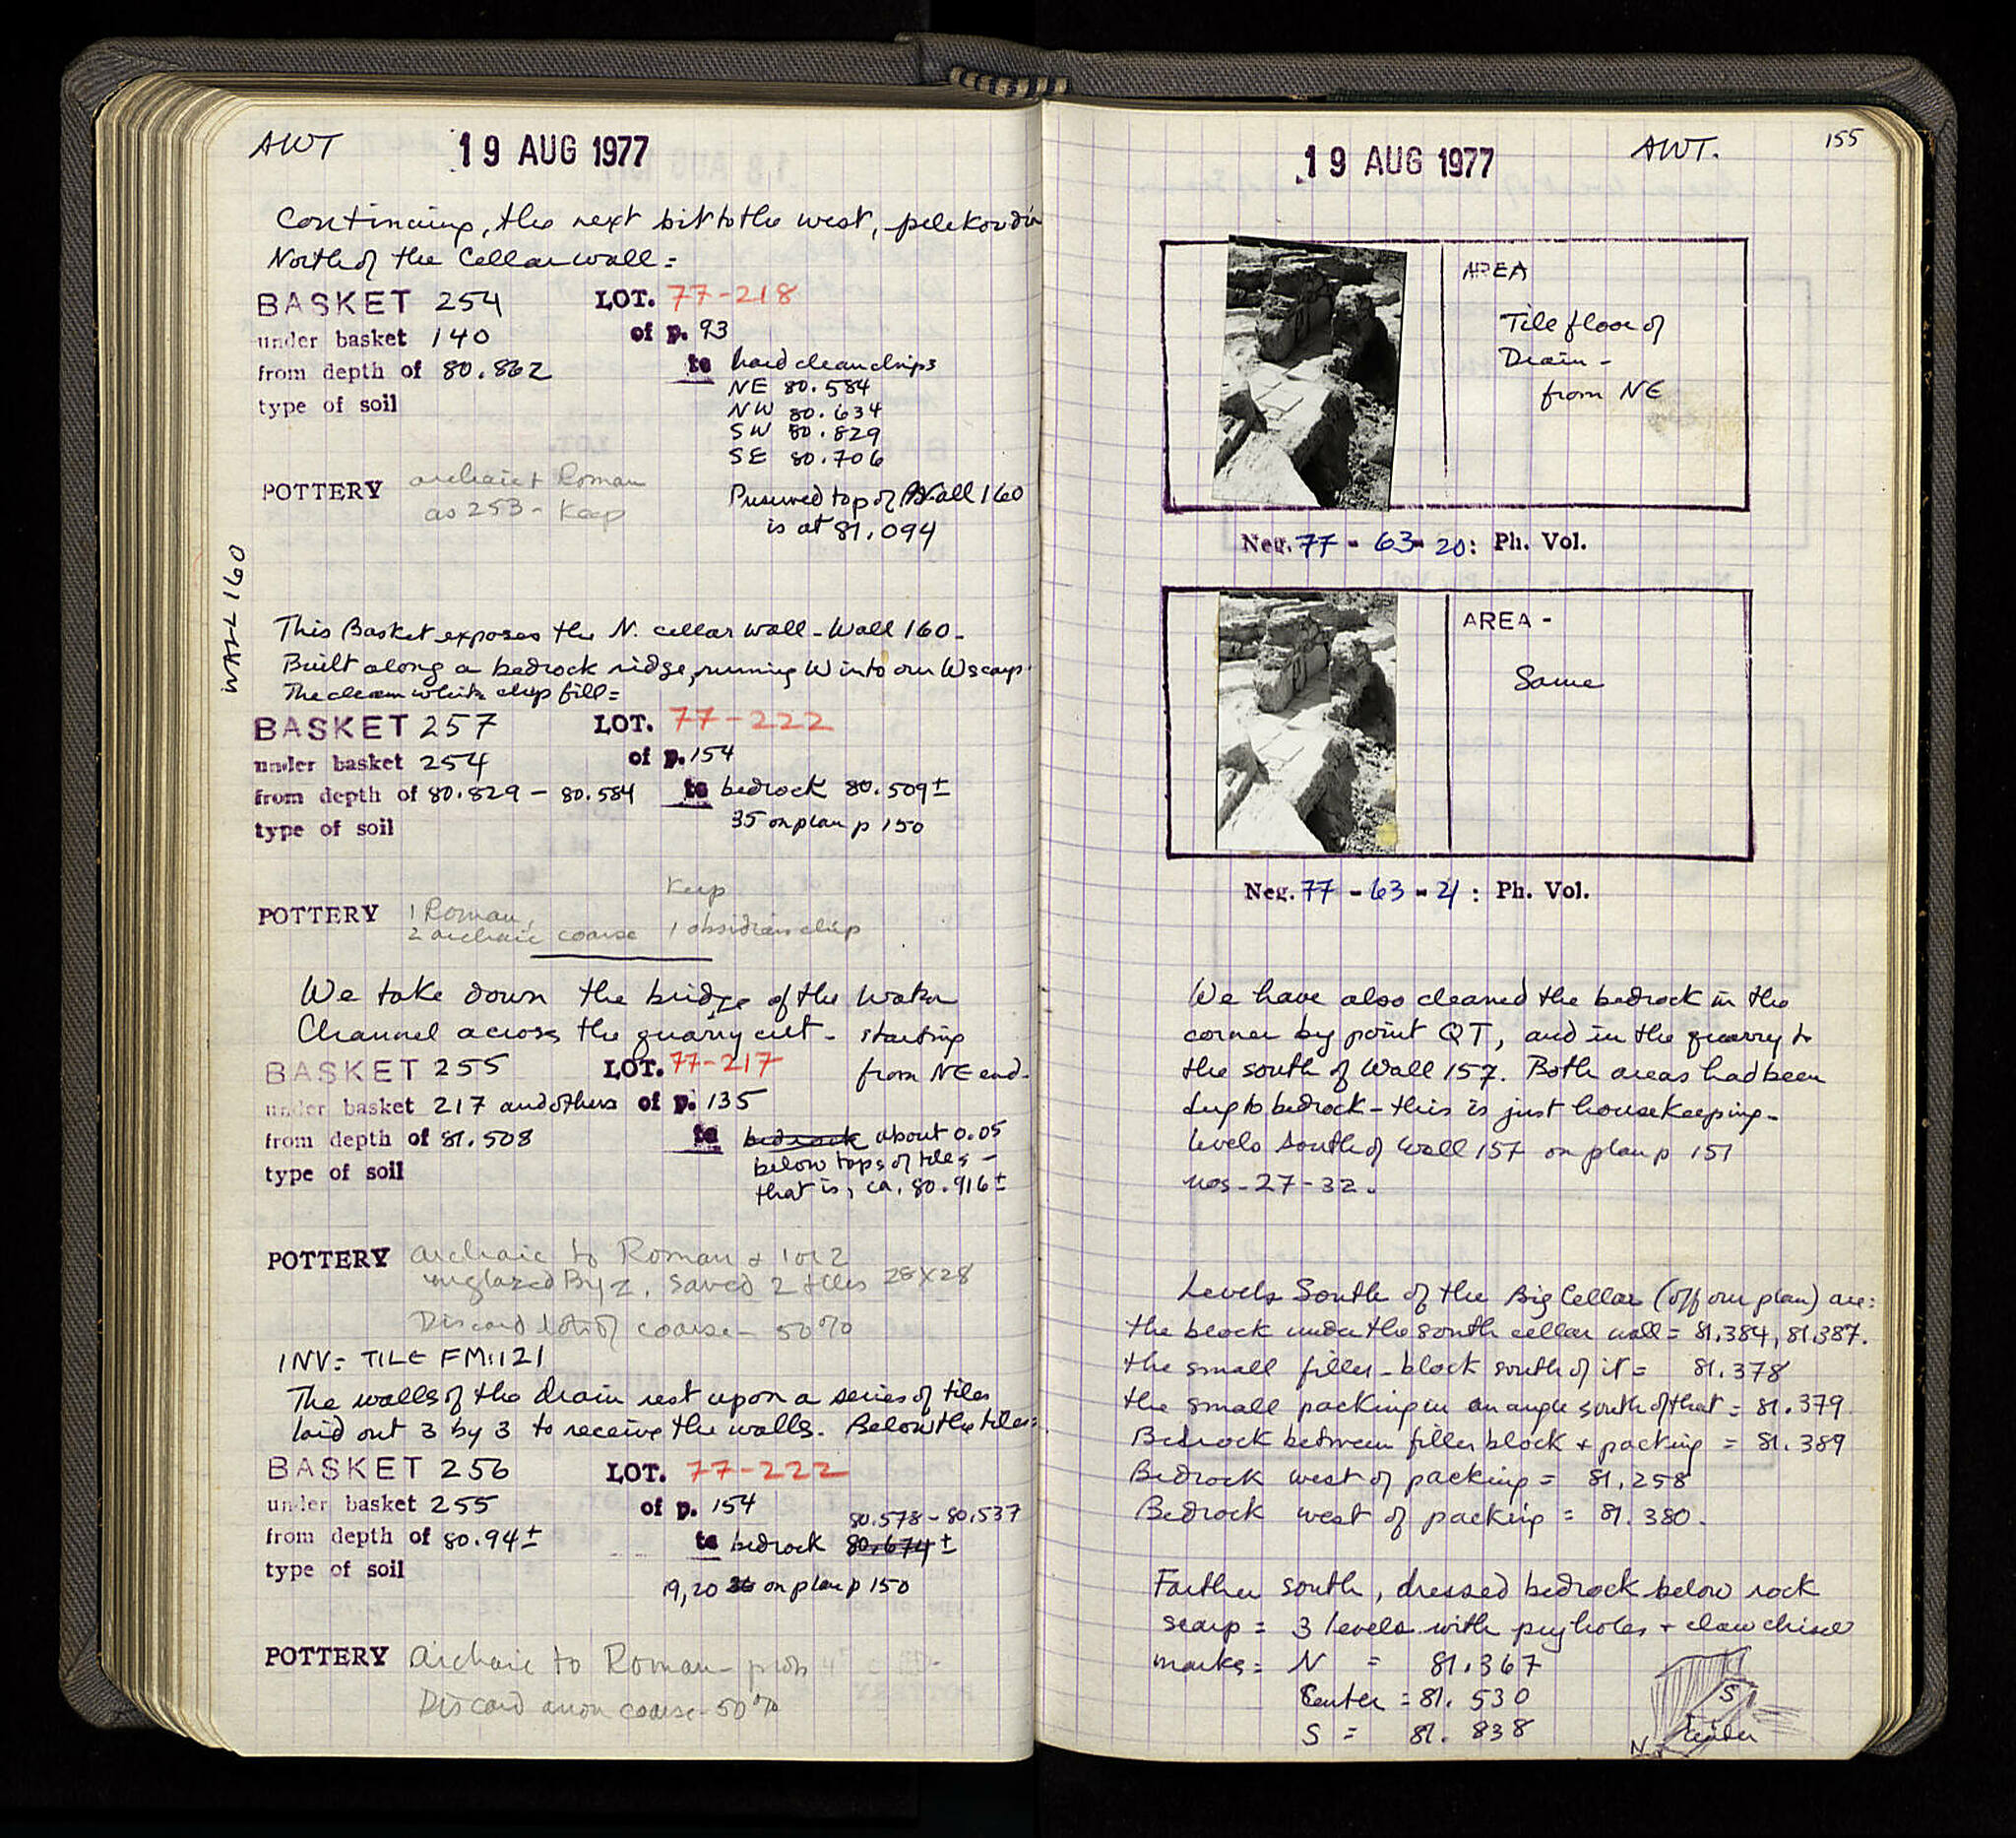 AWT 19 AUG 1977
Continuing, the next bit to the west,
North of the Cellar wall =
BASKET 254 LOT. 77-218
under basket 140 of p. 93
from depth of 80.862 to hard clean chips
NE 80.584
type of soil NW 80.634
SW 80.829
SE 80.706
POTTERY archaic + Roman
as 253 - Keep
Preserved top of Wall 160
is at 81.094
WALL 160
This Basket exposes the N. cellar wall - Wall 160 -
Built along a bedrock ridge, running W into our W scarp.
The clean white chip fill =
BASKET 257 LOT. 77-222
under basket 254 of p. 154
from depth of 80.829 - 80.584 to bedrock 80.509±
type of soil 35 on plan p 150
Keep
POTTERY 1 Roman,
2 archaic coarse 1 obsidian chip
We take down the bridge of the water
Channel across the quarry cut - starting
from NE end -
BASKET 255 LOT. 77-217
under basket 217 and others of p. 135
from depth of 81.508 to bedrock about 0.05
type of soil below tops of tiles -
that is, ca. 80.916±
POTTERY archaic to Roman + 1 or 2
unglazed Byz. Saved 2 tiles 28X28
Discard lots of coarse - 50%
INV = TILE FM:121
The walls of the drain rest upon a series of tiles
laid out 3 by 3 to receive the walls. Below the tiles =
BASKET 256 LOT. 77-222
under basket 255 of p. 154
80.578 - 80.537
from depth of 80.94± to bedrock 80.674±
type of soil 19, 20 on plan p 150
POTTERY Archaic to Roman -
Discard coarse - 50%
19 AUG 1977 AWT. 155
AREA
Tile floor of
Drain -
from NE
Neg. 77 - 63 - 20: Ph. Vol.
AREA -
Same
Neg. 77 - 63 - 21: Ph. Vol.
We have also cleaned the bedrock in the
corner by point QT, and in the quarry to
the south of Wall 157. Both areas had been
dug to bedrock - this is just housekeeping -
levels south of Wall 157 on plan p 151
nos - 27 - 32.
Levels South of the Big Cellar (off our plan) are:
the block under the south cellar wall = 81.384, 81.387.
the small filler - block south of it = 81.378
the small packing in an angle south of that = 81.379
Bedrock between filler block + packing = 81.389
Bedrock west of packing = 81.258
Bedrock west of packing = 81.380.
Farther south, dressed bedrock below rock
scarp = 3 levels with pryholes + claw chisel
marks = N = 81.367
Center = 81.530
S = 81.838
S
Center
N